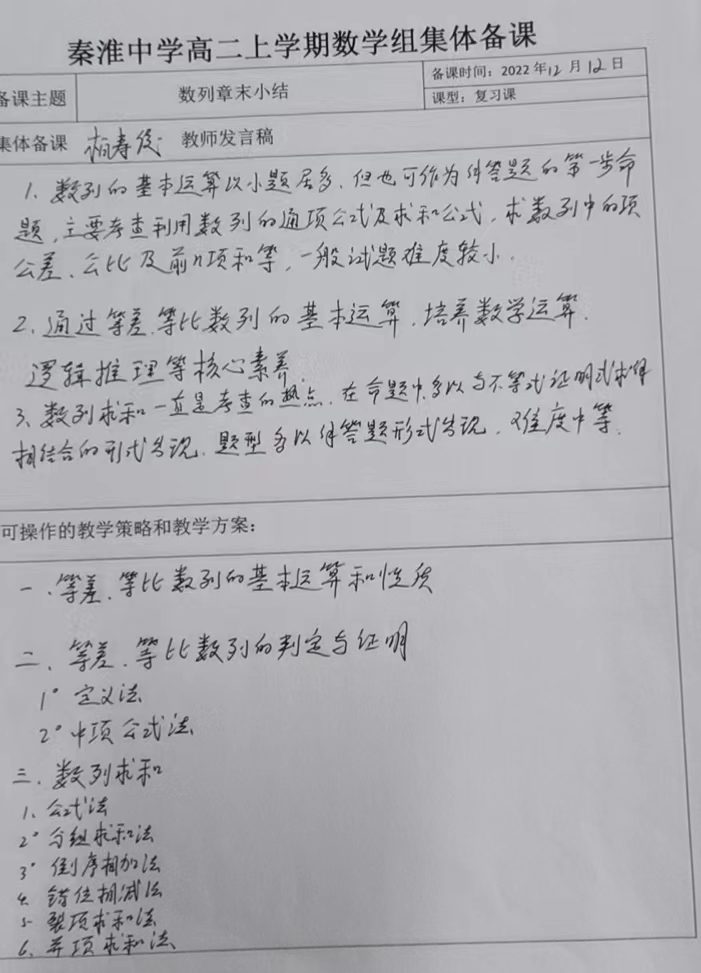 秦淮中学高二上学期数学组集体备课
备课主题
数列章末小结
备课时间：2022年12月12日
课型：复习课
集体备课 教师发言稿
1、数列的基本运算以小题居多，但也可作为解答题的第一步命
题，主要考查利用数列的通项公式及求和公式，求数列中的项
公差、公比及前n项和等，一般试题难度较小.
2、通过等差、等比数列的基本运算，培养数学运算、
逻辑推理等核心素养.
3、数列求和一直是考查的热点，在命题中多以与不等式证明或求解
相结合的形式出现、题型多以解答题形式出现，难度中等.
可操作的教学策略和教学方案：
一、等差、等比数列的基本运算和性质
二、等差、等比数列的判定与证明
1° 定义法
2° 中项公式法
三、数列求和
1、公式法
2° 分组求和法
3° 倒序相加法
4. 错位相减法
5. 裂项求和法
6. 并项求和法